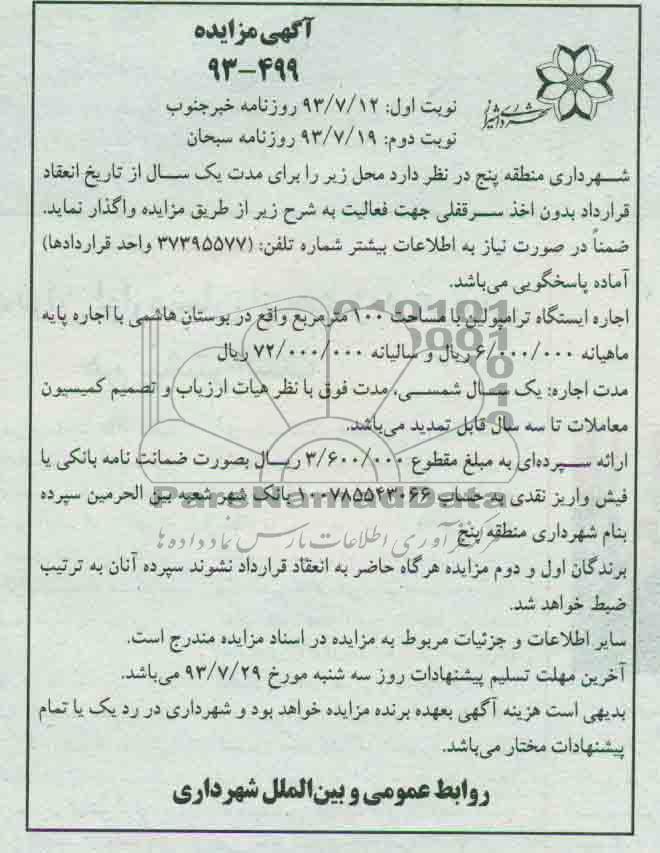 آگهی مزایده
۹۳-۴۹۹
شهرداری شیراز
نوبت اول: ۹۳/۷/۱۲ روزنامه خبرجنوب
نوبت دوم: ۹۳/۷/۱۹ روزنامه سبحان
شهرداری منطقه پنج در نظر دارد محل زیر را برای مدت یک سال از تاریخ انعقاد
قرارداد بدون اخذ سرقفلی جهت فعالیت به شرح زیر از طریق مزایده واگذار نماید.
ضمناً در صورت نیاز به اطلاعات بیشتر شماره تلفن: (۳۷۳۹۵۵۷۷ واحد قراردادها)
آماده پاسخگویی می‌باشد.
اجاره ایستگاه ترامپولین با مساحت ۱۰۰ مترمربع واقع در بوستان هاشمی با اجاره پایه
ماهیانه ۶/۰۰۰/۰۰۰ ریال و سالیانه ۷۲/۰۰۰/۰۰۰ ریال
مدت اجاره: یک سال شمسی، مدت فوق با نظر هیات ارزیاب و تصمیم کمیسیون
معاملات تا سه سال قابل تمدید می‌باشد.
ارائه سپرده‌ای به مبلغ مقطوع ۳/۶۰۰/۰۰۰ ریال بصورت ضمانت نامه بانکی یا
فیش واریز نقدی به حساب ۱۰۰۷۸۵۵۴۳۰۶۶ بانک شهر شعبه بین الحرمین سپرده
ParsNamadData
بنام شهرداری منطقه پنج
مرکز فرآوری اطلاعات پارس نماد داده ها
برندگان اول و دوم مزایده هرگاه حاضر به انعقاد قرارداد نشوند سپرده آنان به ترتیب
ضبط خواهد شد.
سایر اطلاعات و جزئیات مربوط به مزایده در اسناد مزایده مندرج است.
آخرین مهلت تسلیم پیشنهادات روز سه شنبه مورخ ۹۳/۷/۲۹ می‌باشد.
بدیهی است هزینه آگهی بعهده برنده مزایده خواهد بود و شهرداری در رد یک یا تمام
پیشنهادات مختار می‌باشد.
روابط عمومی و بین‌الملل شهرداری